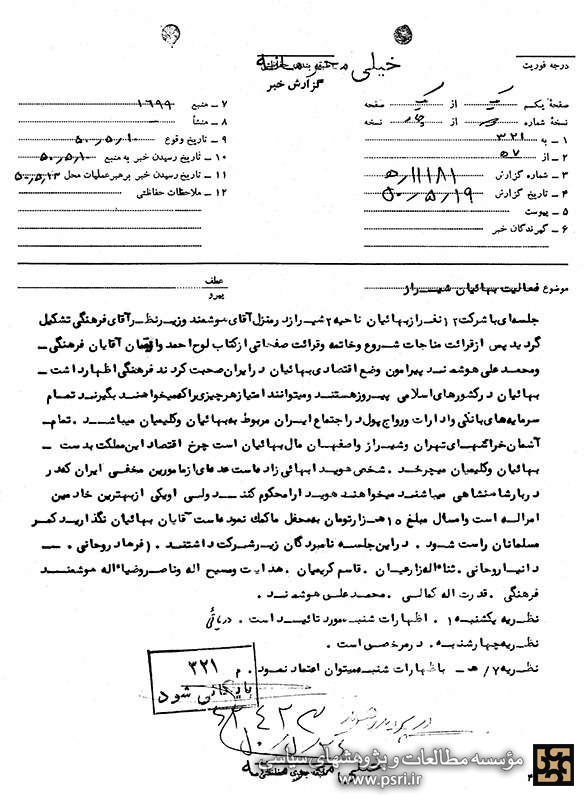 خیلی محرمانه
گزارش خبر
درجه فوریت
صفحهٔ یکم یک از یک صفحه
نسخهٔ شماره از چهار نسخه
۱ ــ به ۳۲۱
۲ ــ از ه۷
۳ ــ شماره گزارش ه/۱۱۱۸۱
۴ ــ تاریخ گزارش ۵۰/۵/۱۹
۵ ــ پیوست
۶ ــ گیرندگان خبر
۷ ــ منبع ۱۶۹۹
۸ ــ منشأ
۹ ــ تاریخ وقوع ۵۰/۵/۱۰
۱۰ ــ تاریخ رسیدن خبر به منبع ۵۰/۵/۱۰
۱۱ ــ تاریخ رسیدن خبر برهبر عملیات محل ۵۰/۵/۱۳
۱۲ ــ ملاحظات حفاظتی
موضوع فعالیت بهائیان شیراز
عطف
پیرو
جلسه‌ای با شرکت ۱۲ نفر از بهائیان ناحیه ۲ شیراز در منزل آقای هوشمند و زیر نظر آقای فرهنگی تشکیل
گردید پس از قرائت مناجات شروع و خاتمه و قرائت صفحاتی از کتاب لوح احمد و ایقان آقایان فرهنگی ــ
و محمد علی هوشمند پیرامون وضع اقتصادی بهائیان در ایران صحبت کردند فرهنگی اظهار داشت ــ
بهائیان در کشورهای اسلامی پیروز هستند و میتوانند امتیاز هر چیزی را که میخواهند بگیرند تمام
سرمایه‌های بانکی و ادارات و رواج پول در اجتماع ایران مربوط به بهائیان و کلیمیان میباشد . تمام ــ
آسمان‌خراشهای تهران و شیراز و اصفهان مال بهائیان است چرخ اقتصاد این مملکت بدست ــ
بهائیان و کلیمیان میچرخد . شخص هویدا بهائی زاده است عده‌ای از مامورین مخفی ایران که در
دربار شاهنشاهی میباشند میخواهند هویدا را محکوم کنند ولی او یکی از بهترین خادمین
امراله است و امسال مبلغ ۱۵ هزار تومان به محفل ما کمک نموده است آقایان بهائیان نگذارید کمر
مسلمانان راست شود . در این جلسه نامبردگان زیر شرکت داشتند . (فرهاد روحانی . ــ
دانیا روحانی . ثناءاله زارعیان . قاسم کریمیان . هدایت و مسیح اله و ناصر و ضیااله هوشمند
فرهنگی . قدرت اله کمالی . محمد علی هوشمند .
نظریه یکشنبه ۱۰ . اظهارات شنبه مورد تائید است .
نظریه چهارشنبه . در مرخصی است .
نظریه ۷/ه ــ باظهارات شنبه میتوان اعتماد نمود . م
۳۲۱
بایگانی شود
خیلی محرمانه
مؤسسه مطالعات و پژوهشهای سیاسی
www.psri.ir